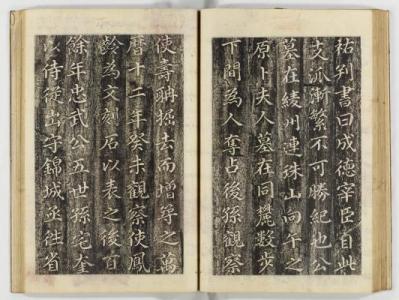 祐列書曰成德宰臣自此
支派漸繁不可勝紀也公
墓在綾州連珠山向午之
原卜夫人墓在同麓數步
下間為人奪占後孫觀察
使壽聃掘去而增封之萬
曆十二年癸未觀察使鳳
齡為文刻石以表之後百
餘年忠武公五世孫宅奎
以侍從出守錦城亟往省